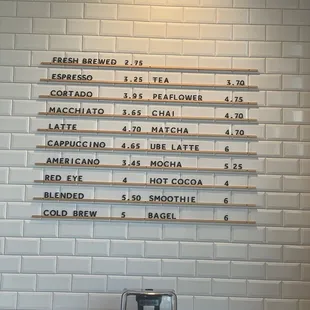 FRESH BREWED 2.75
ESPRESSO 3.25 TEA 3.70
CORTADO 3.95 PEAFLOWER 4.75
MACCHIATO 3.65 CHAI 4.70
LATTE 4.70 MATCHA 4.70
CAPPUCCINO 4.65 UBE LATTE 6
AMERICANO 3.45 MOCHA 5 25
RED EYE 4 HOT COCOA 4
BLENDED 5.50 SMOOTHIE 6
COLD BREW 5 BAGEL 6